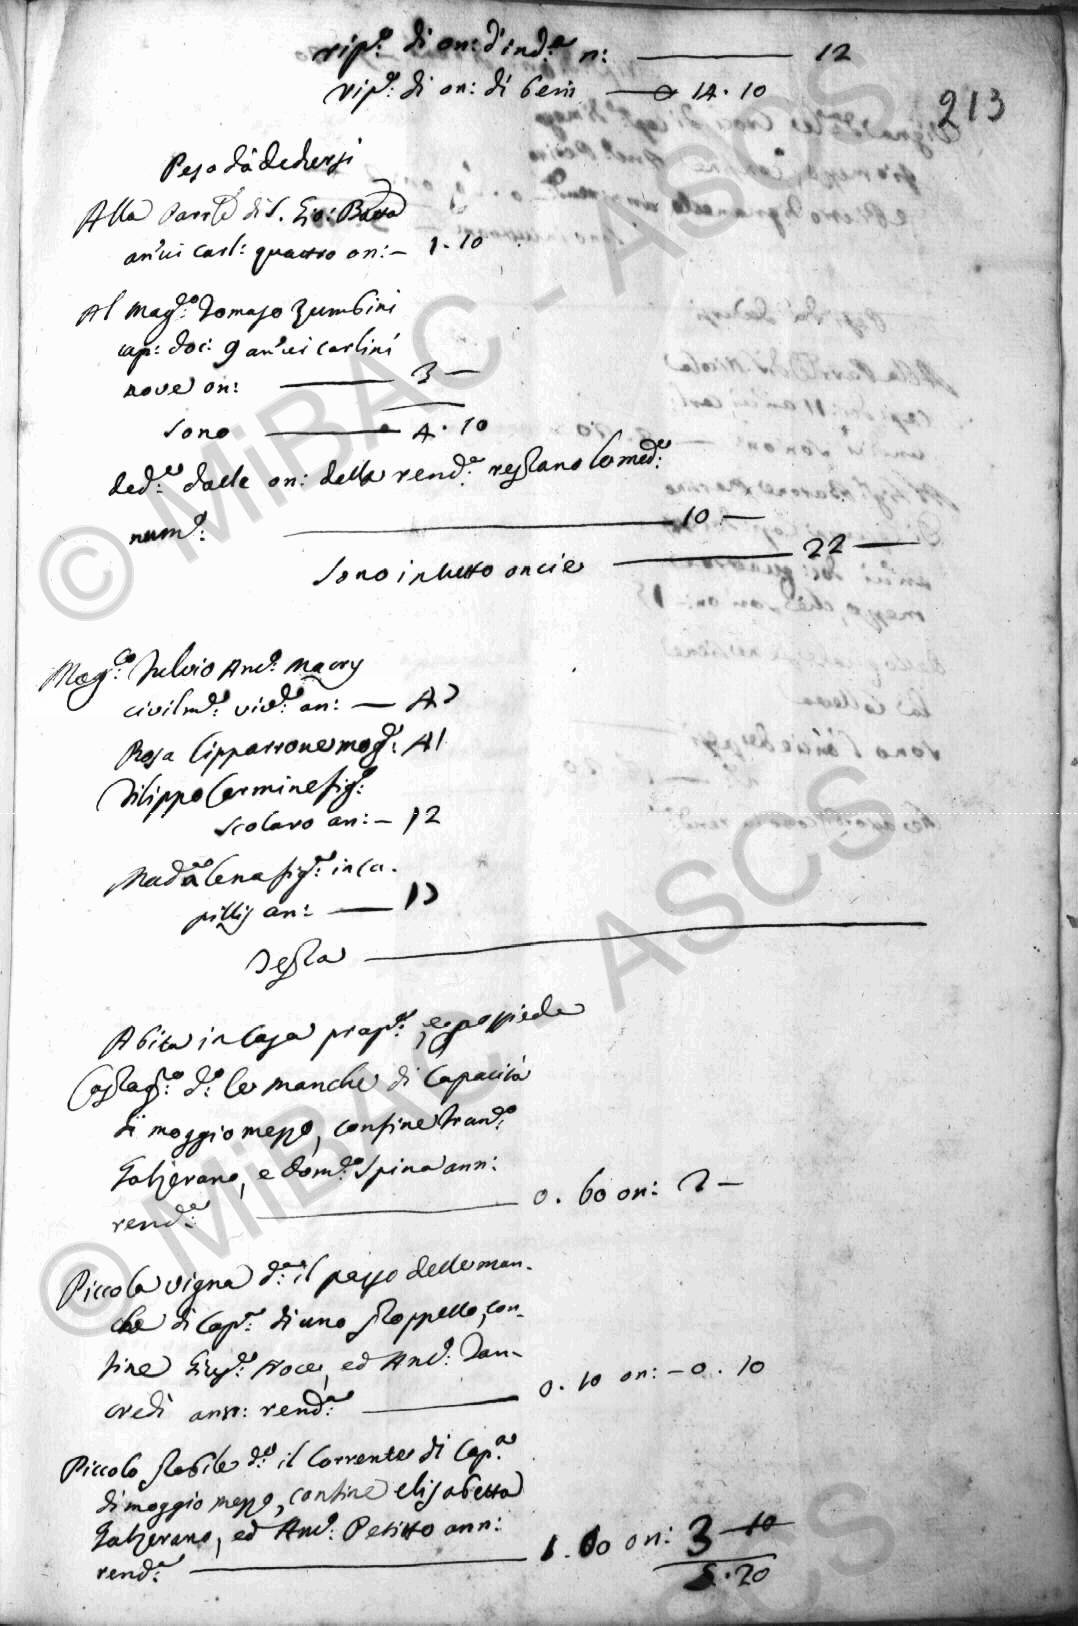 rip.to di on: d'ind.a n: 12
rip.to di on: di beni 14.10
213
Pesi da dedursi
Alla Parr.le di S. Gio: Batta
an'ui carl: quattro on: – 1.10
Al Mag.co Tomaso Zumbini
cap: doc: 9 an'ui carlini
nove on: 3 –
Sono 4.10
ded.e dalle on: della rend.a restano le med.e
num.o 10 –
Sono in tutto oncie 22 –
Mag.co Fulvio And.a Macry
civilm.te viv.te an: – 43
Rosa Lipparrone mog.e 41
Filippo Carmine fig.o
scolaro an: – 12
Madalena fig.a in ca-
pillis an: 13
Testa
Abita in casa prop.a, e possiede
Castag.to d.o le manche di capacità
di moggio mezzo, confine Fran.co
Galzerano, e Dom.co Spina ann:
rend.a 0.60 on: 2 –
Piccola vigna d.a il pezzo delle man-
che di cap.tà di uno stoppello, con-
fine Gius.e Noce, ed And.a Tan-
credi ann: rend.a 0.10 on: – 0.10
Piccolo stabile d.o il Corrente di cap.tà
di moggio mezzo, confine Elisabetta
Galzerano, ed And.a Petitto ann:
rend.a 1.00 on: 3 – 10
5.20
© MiBAC - ASCS
© MiBAC - ASCS
ASCS